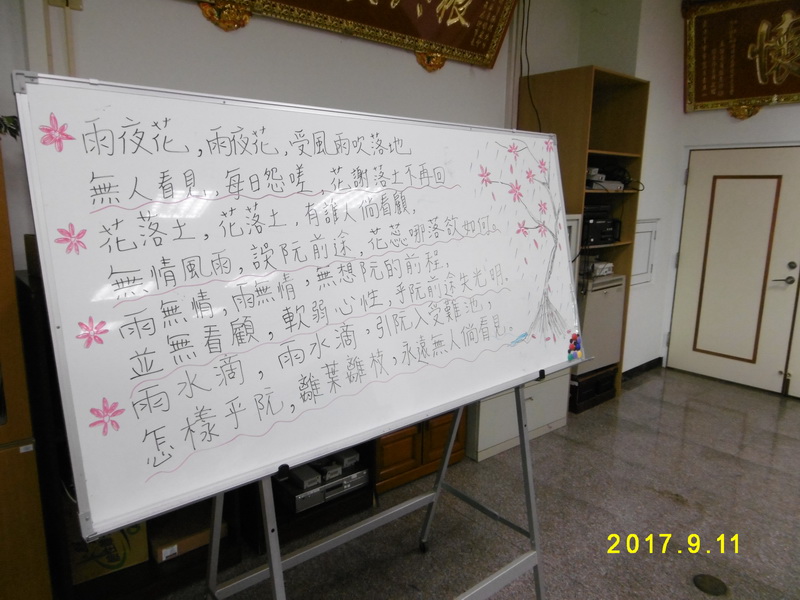 懷
雨夜花,雨夜花,受風雨吹落地
無人看見,每日怨嗟,花謝落土不再回
花落土,花落土,有誰人倘看顧,
無情風雨,誤阮前途,花蕊哪落欲如何。
雨無情,雨無情,無想阮的前程,
並無看顧,軟弱心性,乎阮前途失光明。
雨水滴,雨水滴,引阮入受難池,
怎樣乎阮,離葉離枝,永遠無人倘看見。
2017.9.11